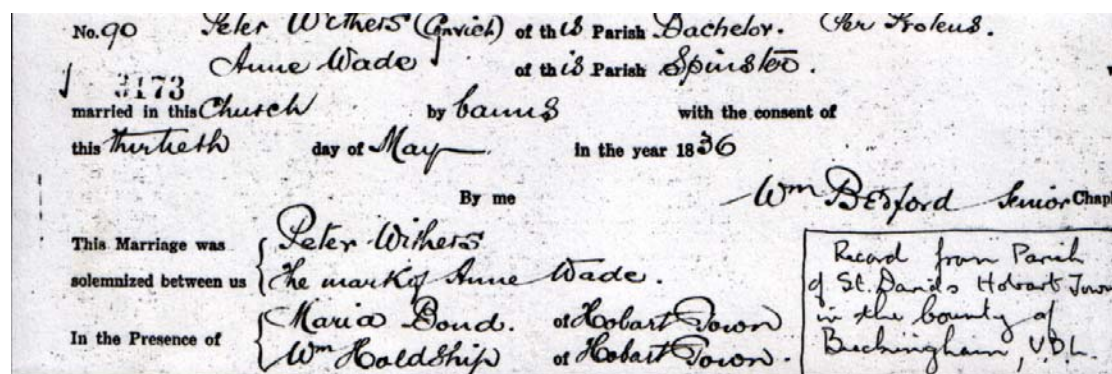 No. 90 Peter Withers (Convict) of this Parish Bachelor. Per Proteus.
Anne Wade of this Parish Spinster.
3173
married in this Church by banns with the consent of
this thirtieth day of May in the year 1836
By me Wm Bedford Senior Chapl
This Marriage was solemnized between us { Peter Withers
The mark of Anne Wade.
In the Presence of { Maria Bond. of Hobart Town
Wm Holdship of Hobart Town.
Record from Parish
of St. Davids Hobart Town
in the County of
Buckingham, V.D.L.